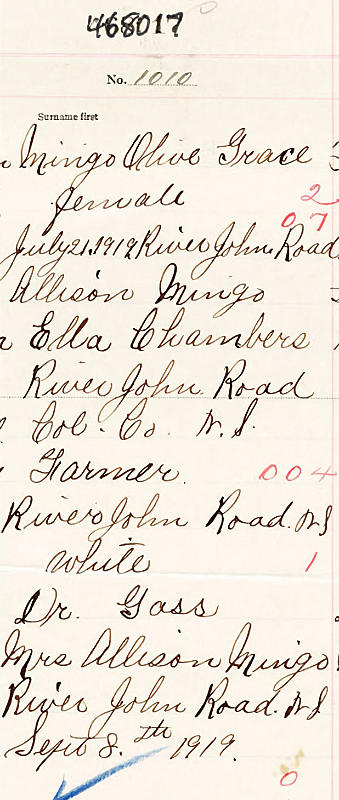 468017
No. 1010
Surname first
Mingo Olive Grace
female 2
07
July 21.1919 River John Road
Allison Mingo
Ella Chambers
River John Road
Col. Co. N.S.
Farmer. 004
River John Road. N S
white 1
Dr. Gass
Mrs Allison Mingo
River John Road. N S
Sept 8.th 1919.
0